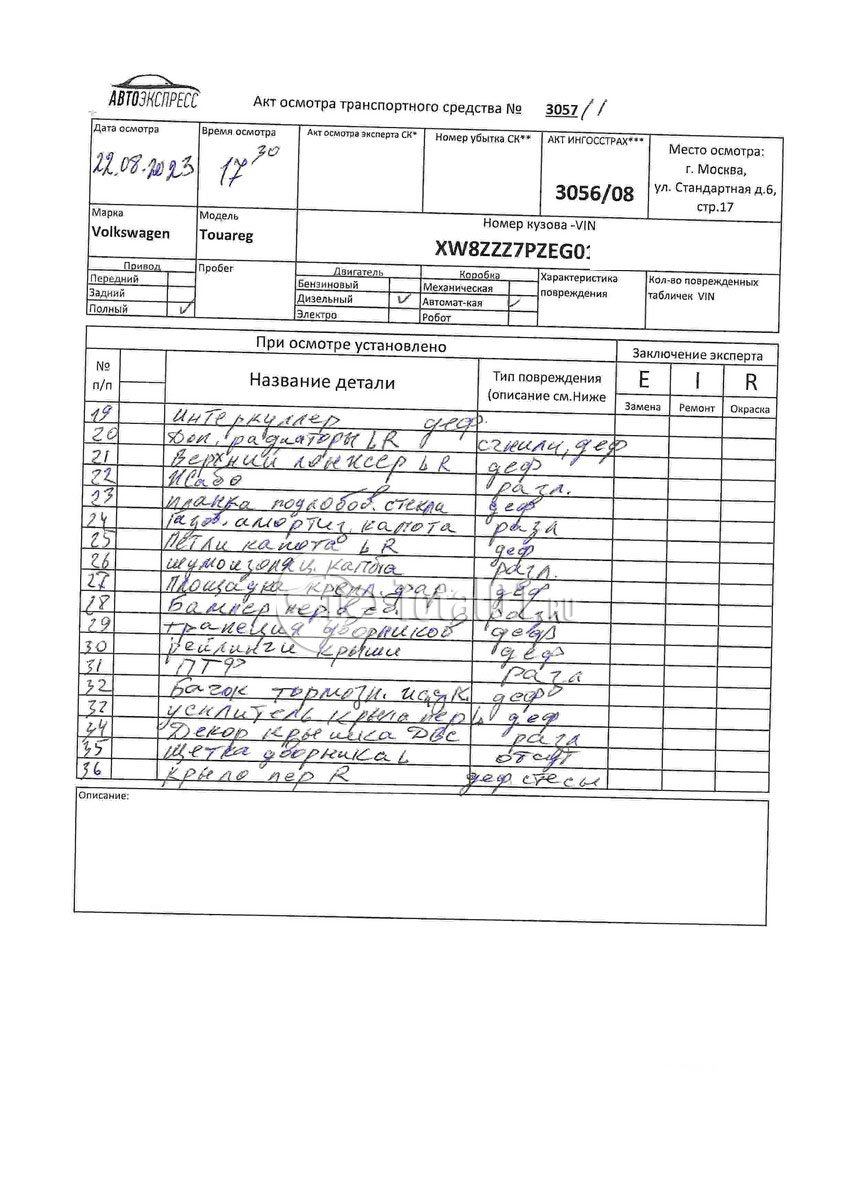 АВТОЭКСПРЕСС
Акт осмотра транспортного средства № 3057/1
Дата осмотра
22.08.2023
Время осмотра
17 30
Акт осмотра эксперта СК*
Номер убытка СК**
АКТ ИНГОССТРАХ***
3056/08
Место осмотра:
г. Москва,
ул. Стандартная д.6,
стр.17
Марка
Volkswagen
Модель
Touareg
Номер кузова -VIN
XW8ZZZ7PZEG01
Привод
Передний
Задний
Полный ✓
Пробег
Двигатель
Бензиновый
Дизельный ✓
Электро
Коробка
Механическая
Автомат-кая ✓
Робот
Характеристика
повреждения
Кол-во поврежденных
табличек VIN
При осмотре установлено
Заключение эксперта
№
п/п
Название детали
Тип повреждения
(описание см.Ниже
E I R
Замена Ремонт Окраска
19 Интеркуллер деф.
20 Доп. радиаторы L R деф
21 Верхний лонжер L R деф
22 разл.
23 планка подлобов. стекла деф
24 Газов. амортиз. капота разл
25 Петли капота L R деф
26 шумоизоляц. капота разл.
27 Площадка крепл. фар. деф
28 Бампер пер. разл
29 трапеция дворников деф
30 рейлинги крыши деф
31 ПТФ разл
32 Бачок тормозн. деф
33 усилитель крыла пер L деф
34 Декор крышка ДВС разл
35 щетка дворника L отсут
36 крыло пер R деф стесы
Описание: